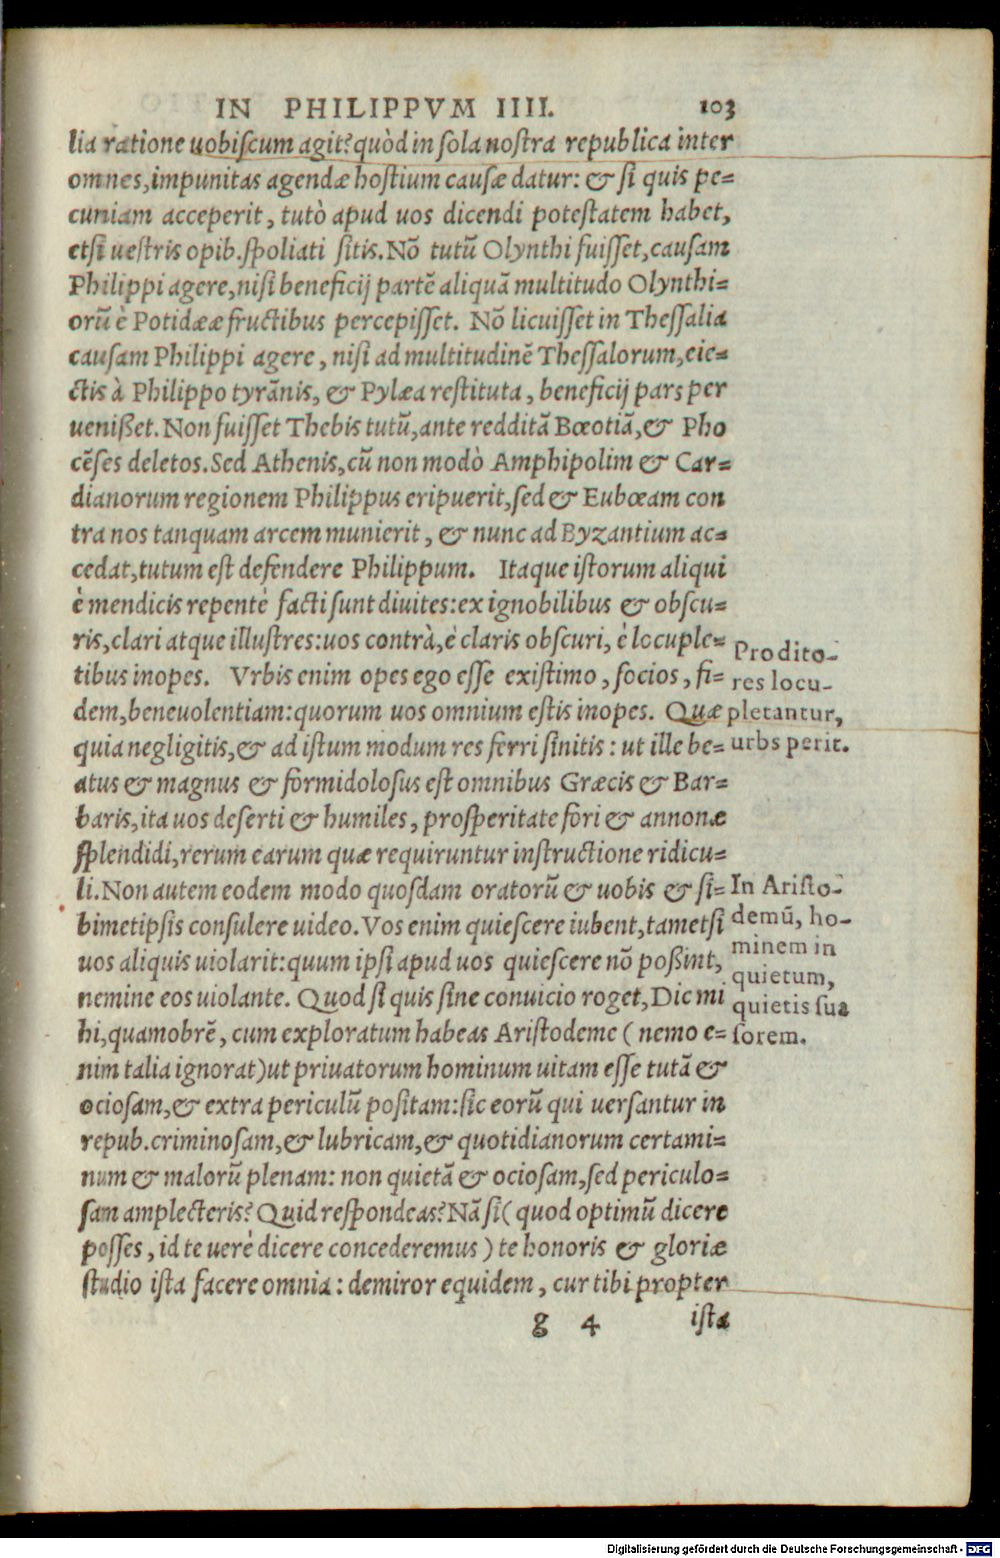 IN PHILIPPVM IIII. 103
lia ratione uobiscum agit? quòd in sola nostra republica inter
omnes, impunitas agendæ hostium causæ datur: & si quis pe=
cuniam acceperit, tutò apud uos dicendi potestatem habet,
etsi uestris opib. spoliati sitis. Nō tutū Olynthi fuisset, causam
Philippi agere, nisi beneficij partē aliquā multitudo Olynthi=
orū è Potidææ fructibus percepisset. Nō licuisset in Thessalia
causam Philippi agere, nisi ad multitudinē Thessalorum, eie=
ctis à Philippo tyrānis, & Pylæa restituta, beneficij pars per
uenißet. Non fuisset Thebis tutū, ante redditā Bœotiā, & Pho
cēses deletos. Sed Athenis, cū non modò Amphipolim & Car=
dianorum regionem Philippus eripuerit, sed & Eubœam con
tra nos tanquam arcem munierit, & nunc ad Byzantium ac=
cedat, tutum est defendere Philippum. Itaque istorum aliqui
è mendicis repentè facti sunt diuites: ex ignobilibus & obscu=
ris, clari atque illustres: uos contrà, è claris obscuri, è locuple=
tibus inopes. Vrbis enim opes ego esse existimo, socios, fi=
dem, beneuolentiam: quorum uos omnium estis inopes. Quæ
quia negligitis, & ad istum modum res ferri sinitis: ut ille be=
atus & magnus & formidolosus est omnibus Græcis & Bar=
baris, ita uos deserti & humiles, prosperitate fori & annonæ
splendidi, rerum earum quæ requiruntur instructione ridicu=
li. Non autem eodem modo quosdam oratorū & uobis & si=
bimetipsis consulere uideo. Vos enim quiescere iubent, tametsi
uos aliquis uiolarit: quum ipsi apud uos quiescere nō poßint,
nemine eos uiolante. Quod si quis sine conuicio roget, Dic mi
hi, quamobrē, cum exploratum habeas Aristodeme (nemo e=
nim talia ignorat) ut priuatorum hominum uitam esse tutā &
ociosam, & extra periculū positam: sic eorū qui uersantur in
repub. criminosam, & lubricam, & quotidianorum certami=
num & malorū plenam: non quietā & ociosam, sed periculo=
sam amplecteris? Quid respondeas? Nā si (quod optimū dicere
posses, id te uerè dicere concederemus) te honoris & gloriæ
studio ista facere omnia: demiror equidem, cur tibi propter
g 4 ista
Prodito-
res locu-
pletantur,
urbs perit.
In Aristo-
demū, ho-
minem in
quietum,
quietis sua
sorem.
Digitalisierung gefördert durch die Deutsche Forschungsgemeinschaft - DFG